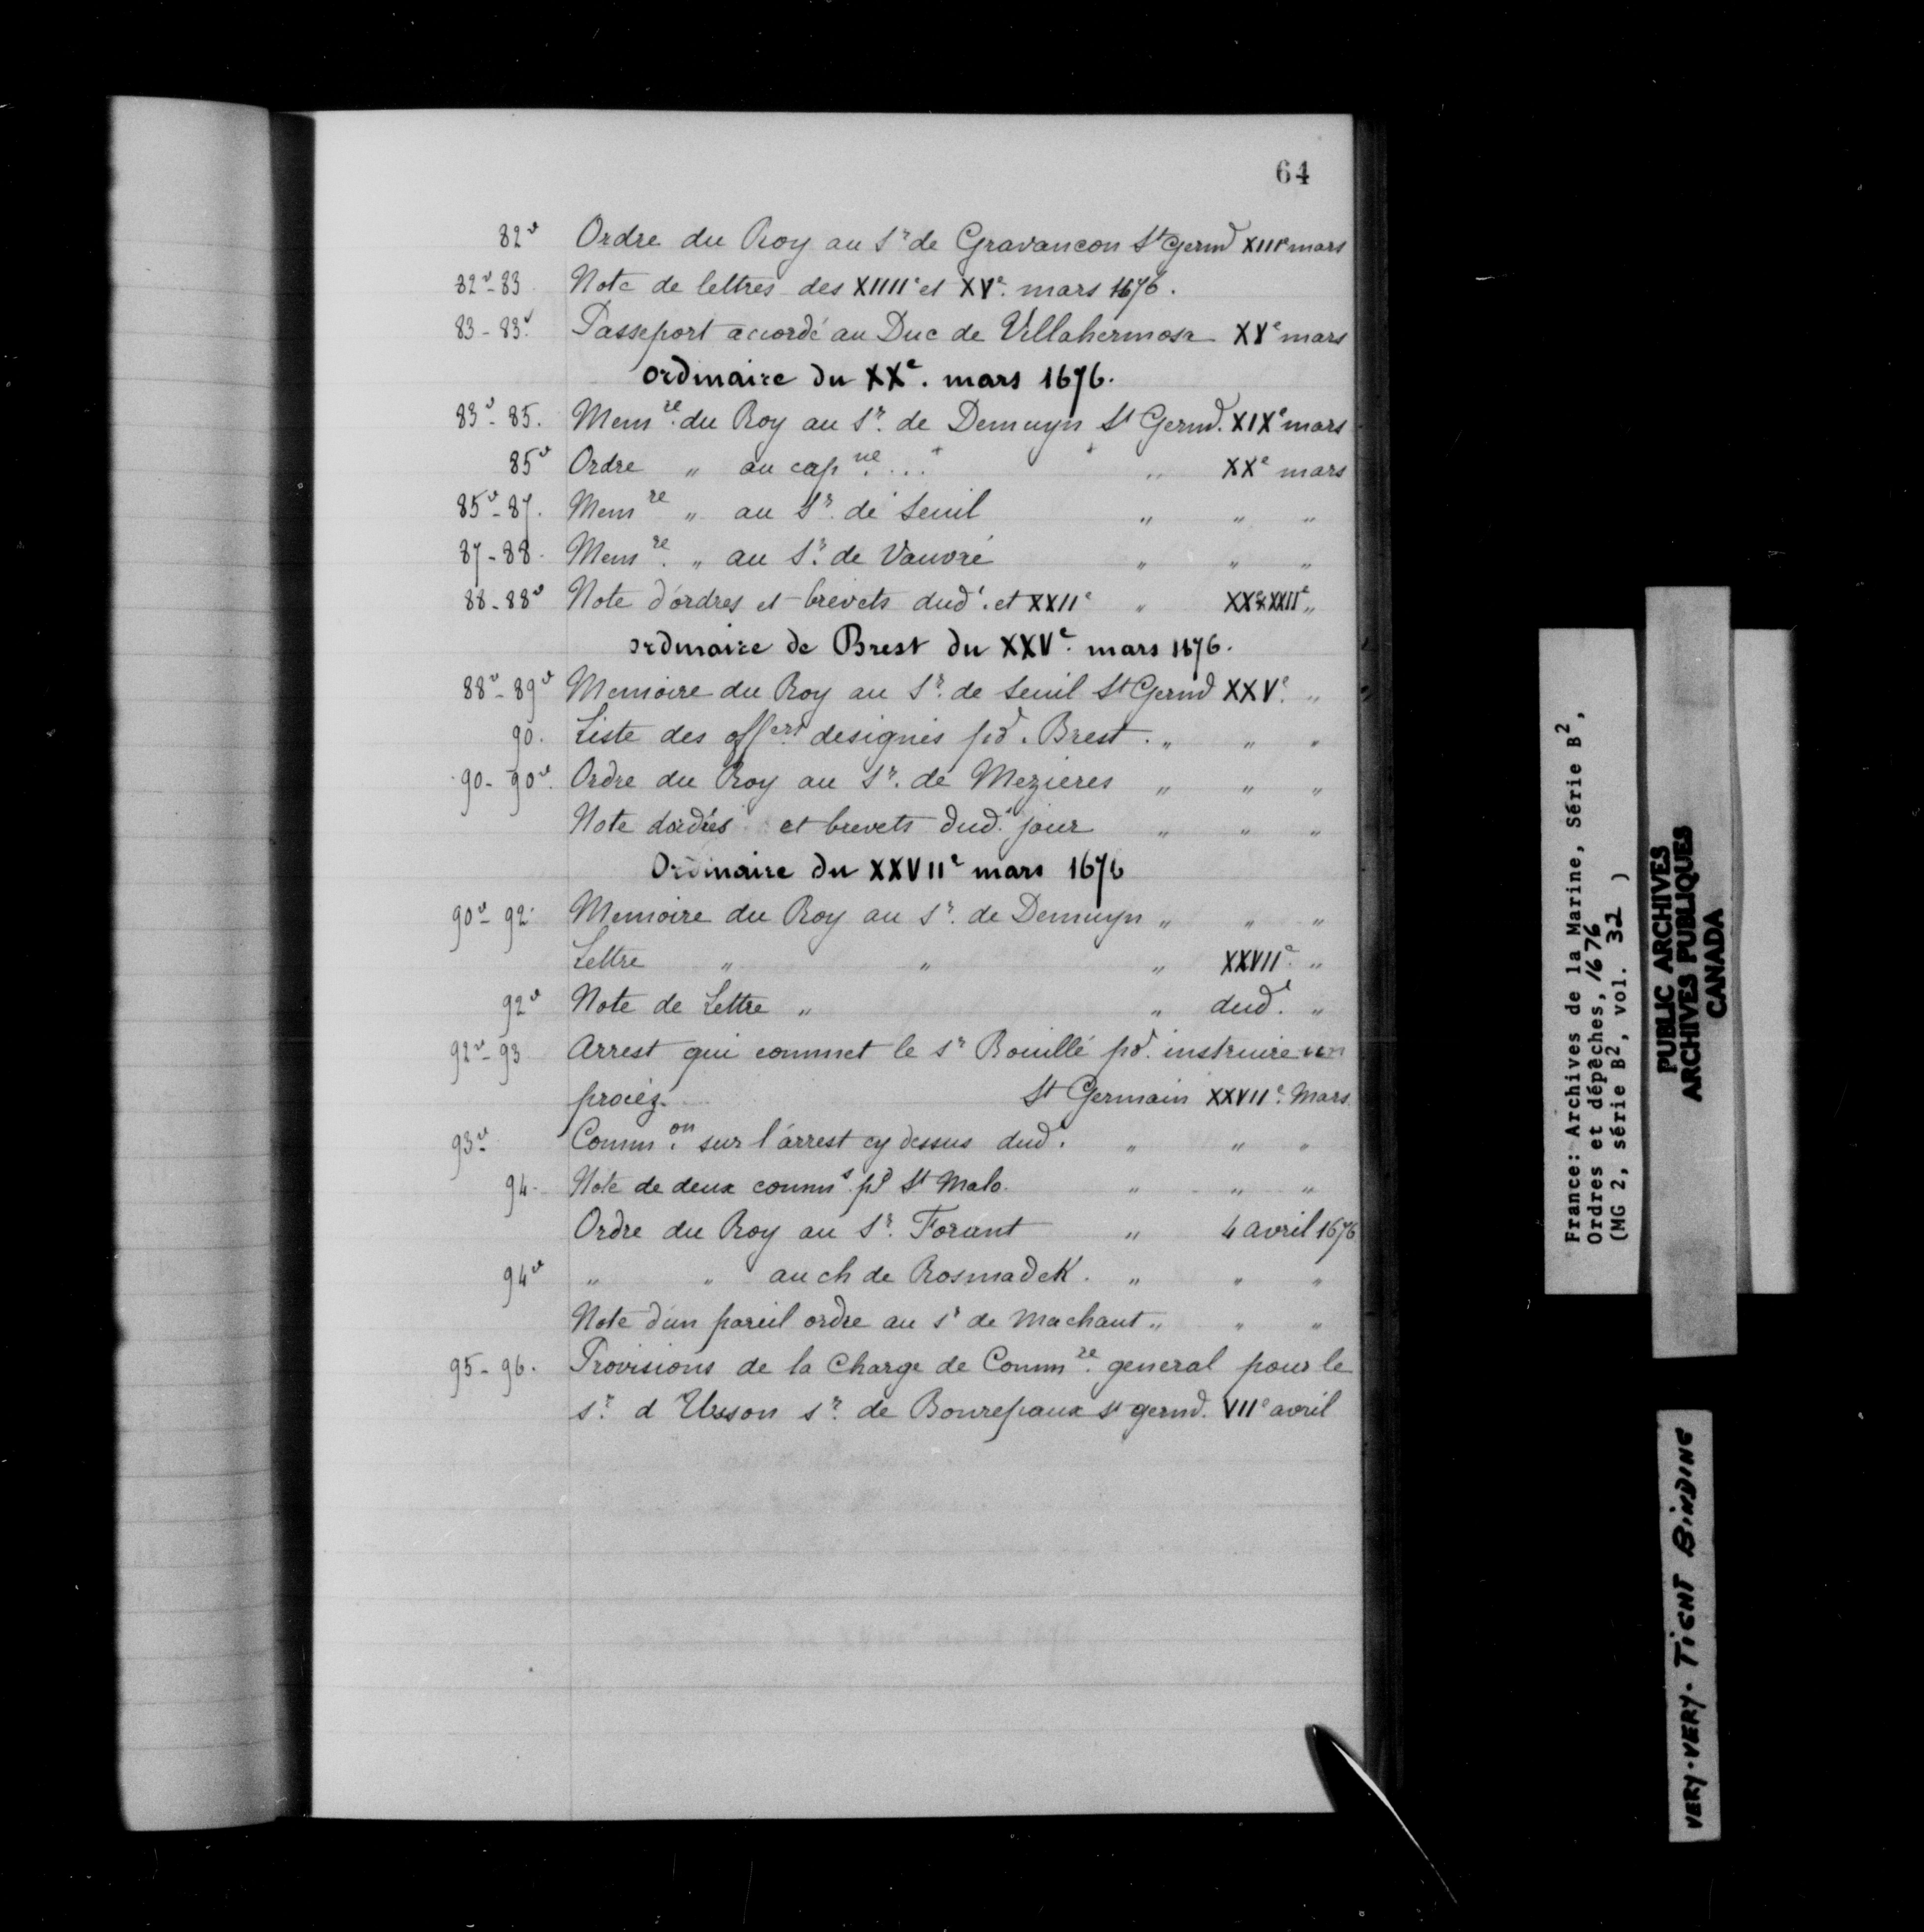 64
82v Ordre du Roy au Sr de Gravancon St Germd XIIIe mars
82v-83 Note de lettres des XIIIIe et XVe mars 1676.
83-83v. Passeport accordé au Duc de Villahermosa XXe mars
Ordinaire du XXe. mars 1676.
83v-85. Memre. du Roy au Sr. de Demuyn St Germd. XIXe mars
85v Ordre " au capne. ... " XXe mars
85v-87. Memre " au Sr. de Seuil " " "
87-88. Memre. " au Sr. de Vauvré " " "
88-88v Note d'ordres et brevets dudt. et XXIIe " XXe & XXIIe "
Ordinaire de Brest du XXVe. mars 1676.
88v-89v Memoire du Roy au Sr. de Seuil St Germd XXVe. "
90. Liste des offers designés pd. Brest. " " "
90-90v. Ordre du Roy au Sr. de Mezieres " " "
Note dordres et brevets dudt. jour " " "
Ordinaire du XXVIIe mars 1676
90v-92. Memoire du Roy au Sr. de Demuyn " " "
Lettre " " " XXVIIe. "
92v Note de Lettre " " dudt. "
92v-93 Arrest qui commet le Sr Bouillé pd. instruire un
procéz. St Germain XXVIIe. Mars.
93v- Common. sur l'arrest cy dessus dudt. " " "
94- Note de deux comms. pd St Malo. " " "
Ordre du Roy au Sr. Forant " 4 avril 1676
94v " " au ch de Rosmadek. " " "
Note d'un pareil ordre au Sr de Machaut " " "
95-96. Provisions de la Charge de Commre. general pour le
Sr. d Usson Sr. de Bonrepaux St germd. VIIe avril
France: Archives de la Marine, Série B2,
Ordres et dépêches, 1676
(MG 2, série B2, vol. 32 )
PUBLIC ARCHIVES
ARCHIVES PUBLIQUES
CANADA
VERY-VERY-TIGHT BINDING